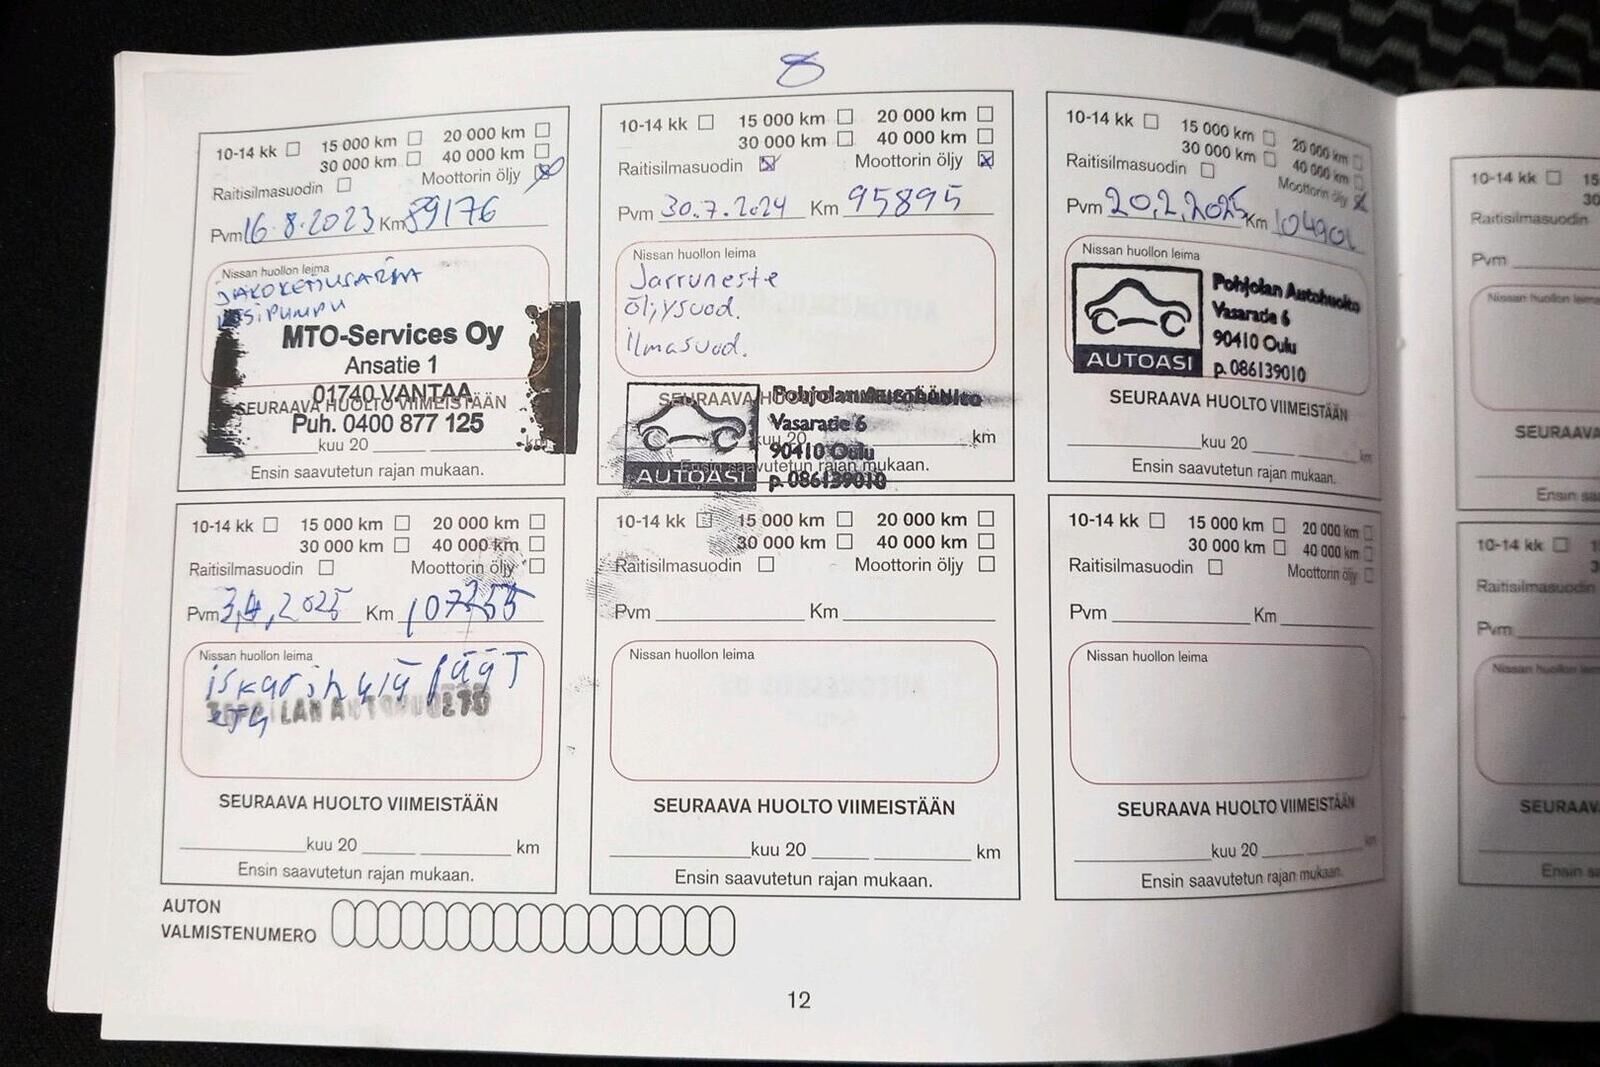 8
10-14 kk 15 000 km 20 000 km
30 000 km 40 000 km
Raitisilmasuodin Moottorin öljy
Pvm 16.8.2023 Km 89176
Nissan huollon leima
JAKOKETJUSARJA
VESIPUMPU
MTO-Services Oy
Ansatie 1
01740 VANTAA
SEURAAVA HUOLTO VIIMEISTÄÄN
Puh. 0400 877 125
kuu 20 km
Ensin saavutetun rajan mukaan.
10-14 kk 15 000 km 20 000 km
30 000 km 40 000 km
Raitisilmasuodin Moottorin öljy
Pvm 30.7.2024 Km 95895
Nissan huollon leima
Jarruneste
öljysuod.
ilmasuod.
SEURAAVA HUOLTO VIIMEISTÄÄN
Pohjolan Autohuolto
Vasaratie 6
kuu 20 km
90410 Oulu
Ensin saavutetun rajan mukaan.
AUTOASI p. 086139010
10-14 kk 15 000 km 20 000 km
30 000 km 40 000 km
Raitisilmasuodin Moottorin öljy
Pvm 20.2.2025 Km
Nissan huollon leima
Pohjolan Autohuolto
Vasaratie 6
90410 Oulu
AUTOASI p. 086139010
SEURAAVA HUOLTO VIIMEISTÄÄN
kuu 20 km
Ensin saavutetun rajan mukaan.
10-14 kk 15
30
Raitisilmasuodin
Pvm
Nissan huollon leima
SEURAAVA
Ensin
10-14 kk 15 000 km 20 000 km
30 000 km 40 000 km
Raitisilmasuodin Moottorin öljy
Pvm 3.4.2025 Km 107255
Nissan huollon leima
iskarit ylä päät
AUTOHUOLTO
SEURAAVA HUOLTO VIIMEISTÄÄN
kuu 20 km
Ensin saavutetun rajan mukaan.
10-14 kk 15 000 km 20 000 km
30 000 km 40 000 km
Raitisilmasuodin Moottorin öljy
Pvm Km
Nissan huollon leima
SEURAAVA HUOLTO VIIMEISTÄÄN
kuu 20 km
Ensin saavutetun rajan mukaan.
10-14 kk 15 000 km 20 000 km
30 000 km 40 000 km
Raitisilmasuodin Moottorin öljy
Pvm Km
Nissan huollon leima
SEURAAVA HUOLTO VIIMEISTÄÄN
kuu 20 km
Ensin saavutetun rajan mukaan.
10-14 kk
Raitisilmasuodin
Pvm
Nissan huollon leima
SEURAAV
Ensin
AUTON
VALMISTENUMERO
12